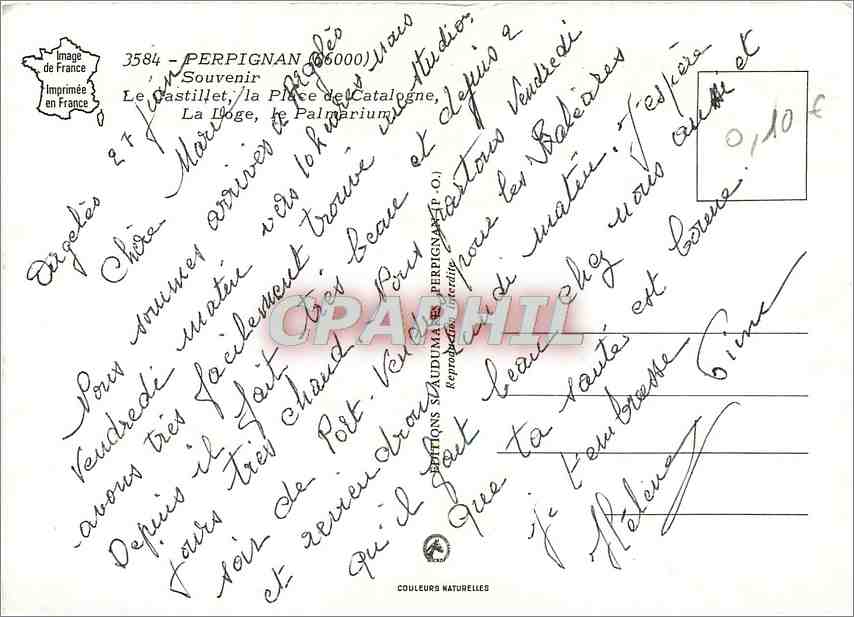 Image
de France
Imprimée
en France
3584 - PERPIGNAN (66000)
Souvenir
Le Castillet, la Place de Catalogne,
La Loge, le Palmarium
0,10 €
Argelès 27 juin
Chère Mary
Nous sommes arrivés à Argelès
Vendredi matin vers 10h nous
avons très facilement trouvé un studio.
Depuis il fait très beau et depuis 2
jours très chaud. Nous partons Vendredi
soir de Port-Vendres pour les Baléares
et reviendrons matin. J'espère
qu'il fait beau chez nous aussi et
que ta santé est bonne.
Je t'embrasse
Hélène
EDITIONS SL AUDUMARES PERPIGNAN (P.-O.)
Reproduction interdite
CPAPHIL
COULEURS NATURELLES